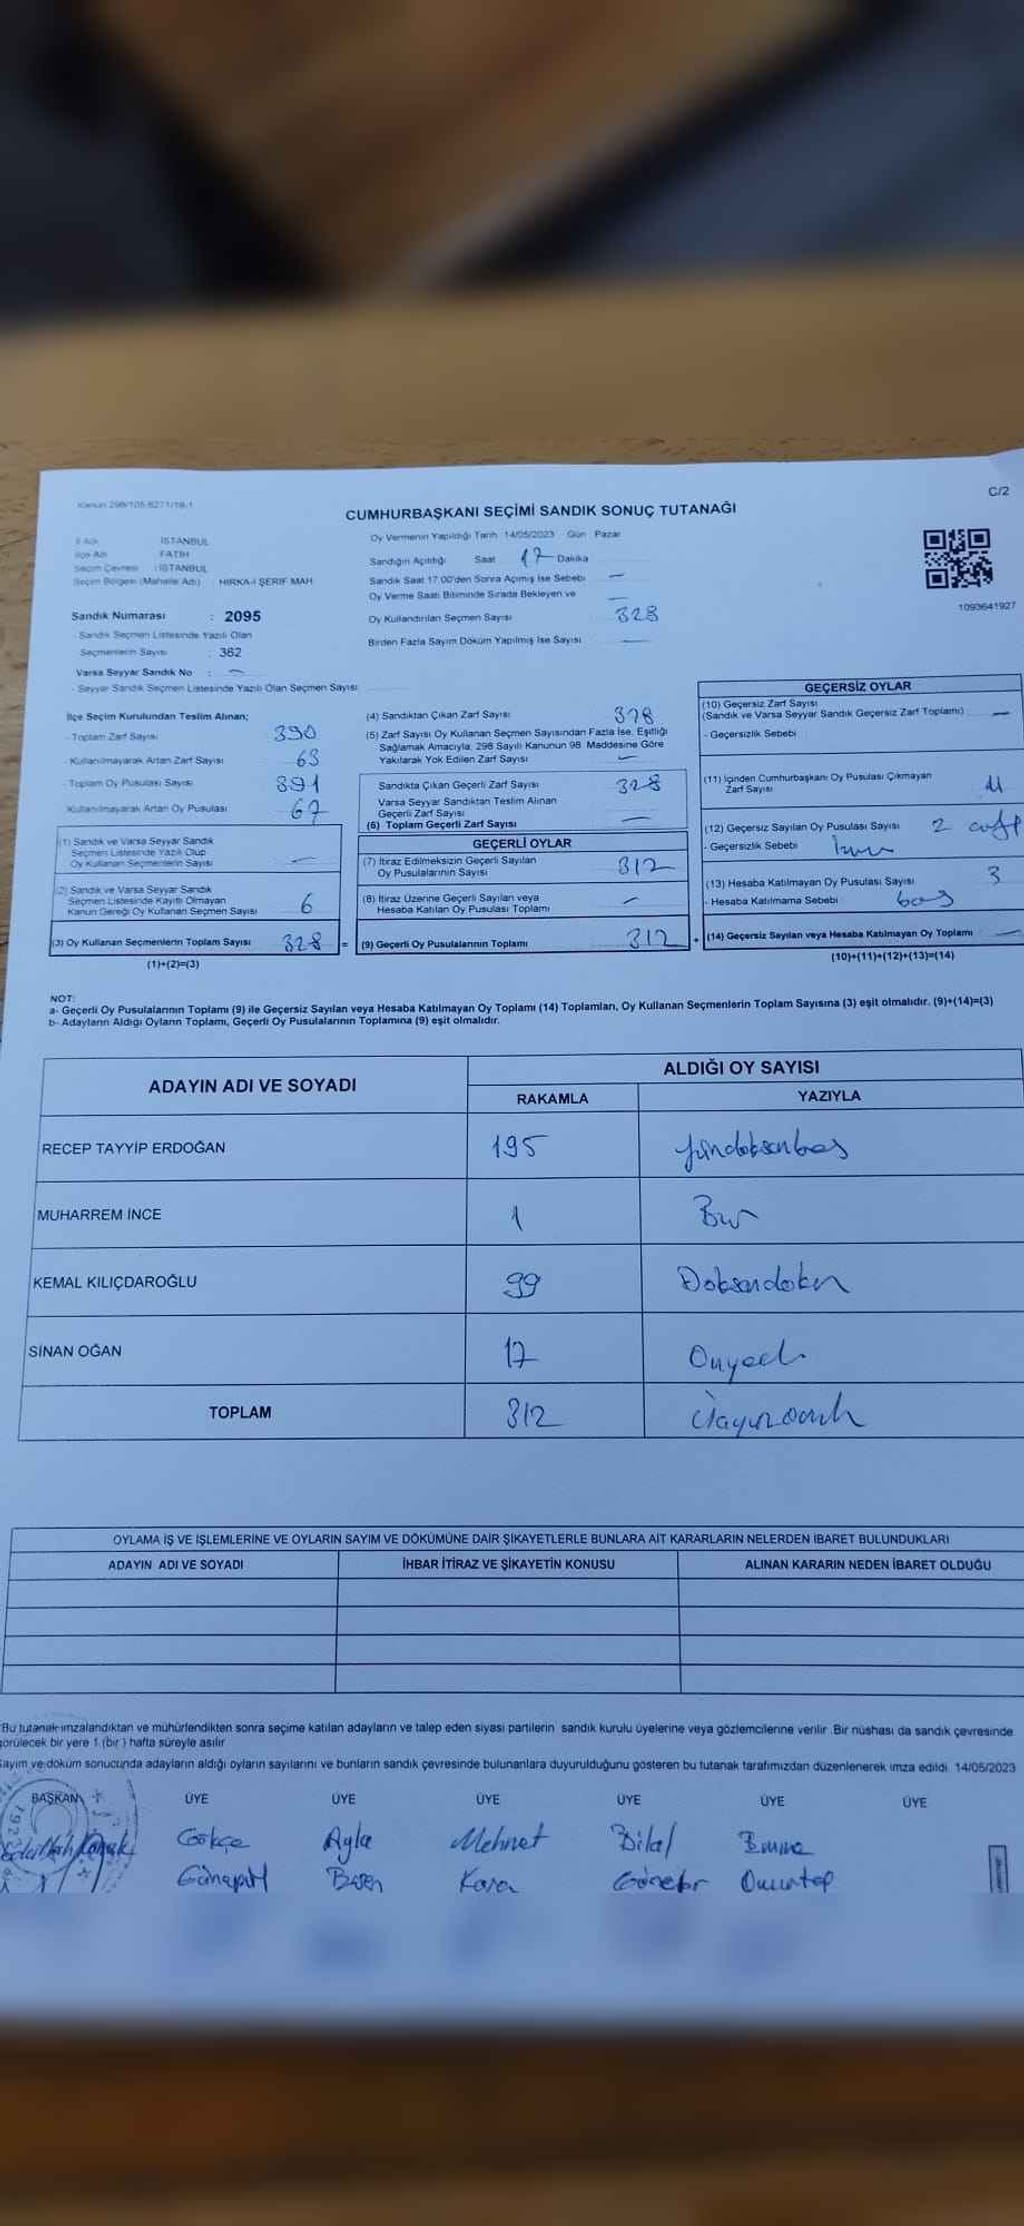 Kanun 298/105-6271/19-1
C/2
CUMHURBAŞKANI SEÇİMİ SANDIK SONUÇ TUTANAĞI
İl Adı İSTANBUL
İlçe Adı FATİH
Seçim Çevresi : İSTANBUL
Seçim Bölgesi (Mahalle Adı) : HIRKA-İ ŞERİF MAH
Sandık Numarası : 2095
- Sandık Seçmen Listesinde Yazılı Olan
Seçmenlerin Sayısı : 362
Varsa Seyyar Sandık No : —
- Seyyar Sandık Seçmen Listesinde Yazılı Olan Seçmen Sayısı
Oy Vermenin Yapıldığı Tarih 14/05/2023 Gün Pazar
Sandığın Açıldığı Saat 17 Dakika
Sandık Saat 17:00'den Sonra Açımış İse Sebebi —
Oy Verme Saati Bitiminde Sırada Bekleyen ve —
Oy Kullandırılan Seçmen Sayısı 328
Birden Fazla Sayım Döküm Yapılmış İse Sayısı —
1093641927
İlçe Seçim Kurulundan Teslim Alınan;
- Toplam Zarf Sayısı 390
- Kullanılmayarak Artan Zarf Sayısı 63
- Toplam Oy Pusulası Sayısı 391
Kullanılmayarak Artan Oy Pusulası 67
(1) Sandık ve Varsa Seyyar Sandık
Seçmen Listesinde Yazılı Olup
Oy Kullanan Seçmenlerin Sayısı —
(2) Sandık ve Varsa Seyyar Sandık
Seçmen Listesinde Kayıtlı Olmayan
Kanun Gereği Oy Kullanan Seçmen Sayısı 6
(3) Oy Kullanan Seçmenlerin Toplam Sayısı 328 =
(1)+(2)=(3)
(4) Sandıktan Çıkan Zarf Sayısı 328
(5) Zarf Sayısı Oy Kullanan Seçmen Sayısından Fazla İse, Eşitliği
Sağlamak Amacıyla, 298 Sayılı Kanunun 98. Maddesine Göre
Yakılarak Yok Edilen Zarf Sayısı —
Sandıkta Çıkan Geçerli Zarf Sayısı 328
Varsa Seyyar Sandıktan Teslim Alınan
Geçerli Zarf Sayısı
(6) Toplam Geçerli Zarf Sayısı —
GEÇERLİ OYLAR
(7) İtiraz Edilmeksizin Geçerli Sayılan
Oy Pusulalarının Sayısı 312
(8) İtiraz Üzerine Geçerli Sayılan veya
Hesaba Katılan Oy Pusulası Toplamı —
(9) Geçerli Oy Pusulalarının Toplamı 312 +
GEÇERSİZ OYLAR
(10) Geçersiz Zarf Sayısı
(Sandık ve Varsa Seyyar Sandık Geçersiz Zarf Toplamı) —
- Geçersizlik Sebebi
(11) İçinden Cumhurbaşkanı Oy Pusulası Çıkmayan
Zarf Sayısı 11
(12) Geçersiz Sayılan Oy Pusulası Sayısı 2
- Geçersizlik Sebebi
(13) Hesaba Katılmayan Oy Pusulası Sayısı 3
- Hesaba Katılmama Sebebi boş
(14) Geçersiz Sayılan veya Hesaba Katılmayan Oy Toplamı —
(10)+(11)+(12)+(13)=(14)
NOT:
a- Geçerli Oy Pusulalarının Toplamı (9) ile Geçersiz Sayılan veya Hesaba Katılmayan Oy Toplamı (14) Toplamları, Oy Kullanan Seçmenlerin Toplam Sayısına (3) eşit olmalıdır. (9)+(14)=(3)
b- Adayların Aldığı Oyların Toplamı, Geçerli Oy Pusulalarının Toplamına (9) eşit olmalıdır.
ADAYIN ADI VE SOYADI
ALDIĞI OY SAYISI
RAKAMLA YAZIYLA
RECEP TAYYİP ERDOĞAN 195 yüzdoksanbeş
MUHARREM İNCE 1 Bir
KEMAL KILIÇDAROĞLU 99 Doksandokuz
SİNAN OĞAN 17 Onyedi
TOPLAM 312 üçyüzoniki
OYLAMA İŞ VE İŞLEMLERİNE VE OYLARIN SAYIM VE DÖKÜMÜNE DAİR ŞİKAYETLERLE BUNLARA AİT KARARLARIN NELERDEN İBARET BULUNDUKLARI
ADAYIN ADI VE SOYADI İHBAR İTİRAZ VE ŞİKAYETİN KONUSU ALINAN KARARIN NEDEN İBARET OLDUĞU
Bu tutanak imzalandıktan ve mühürlendikten sonra seçime katılan adayların ve talep eden siyasi partilerin sandık kurulu üyelerine veya gözlemcilerine verilir. Bir nüshası da sandık çevresinde
görülecek bir yere 1 (bir) hafta süreyle asılır
Sayım ve döküm sonucunda adayların aldığı oyların sayılarını ve bunların sandık çevresinde bulunanlara duyurulduğunu gösteren bu tutanak tarafımızdan düzenlenerek imza edildi. 14/05/2023
BAŞKAN ÜYE ÜYE ÜYE ÜYE ÜYE ÜYE
Gökçe Ayla Mehmet Bilal Emine
Kara